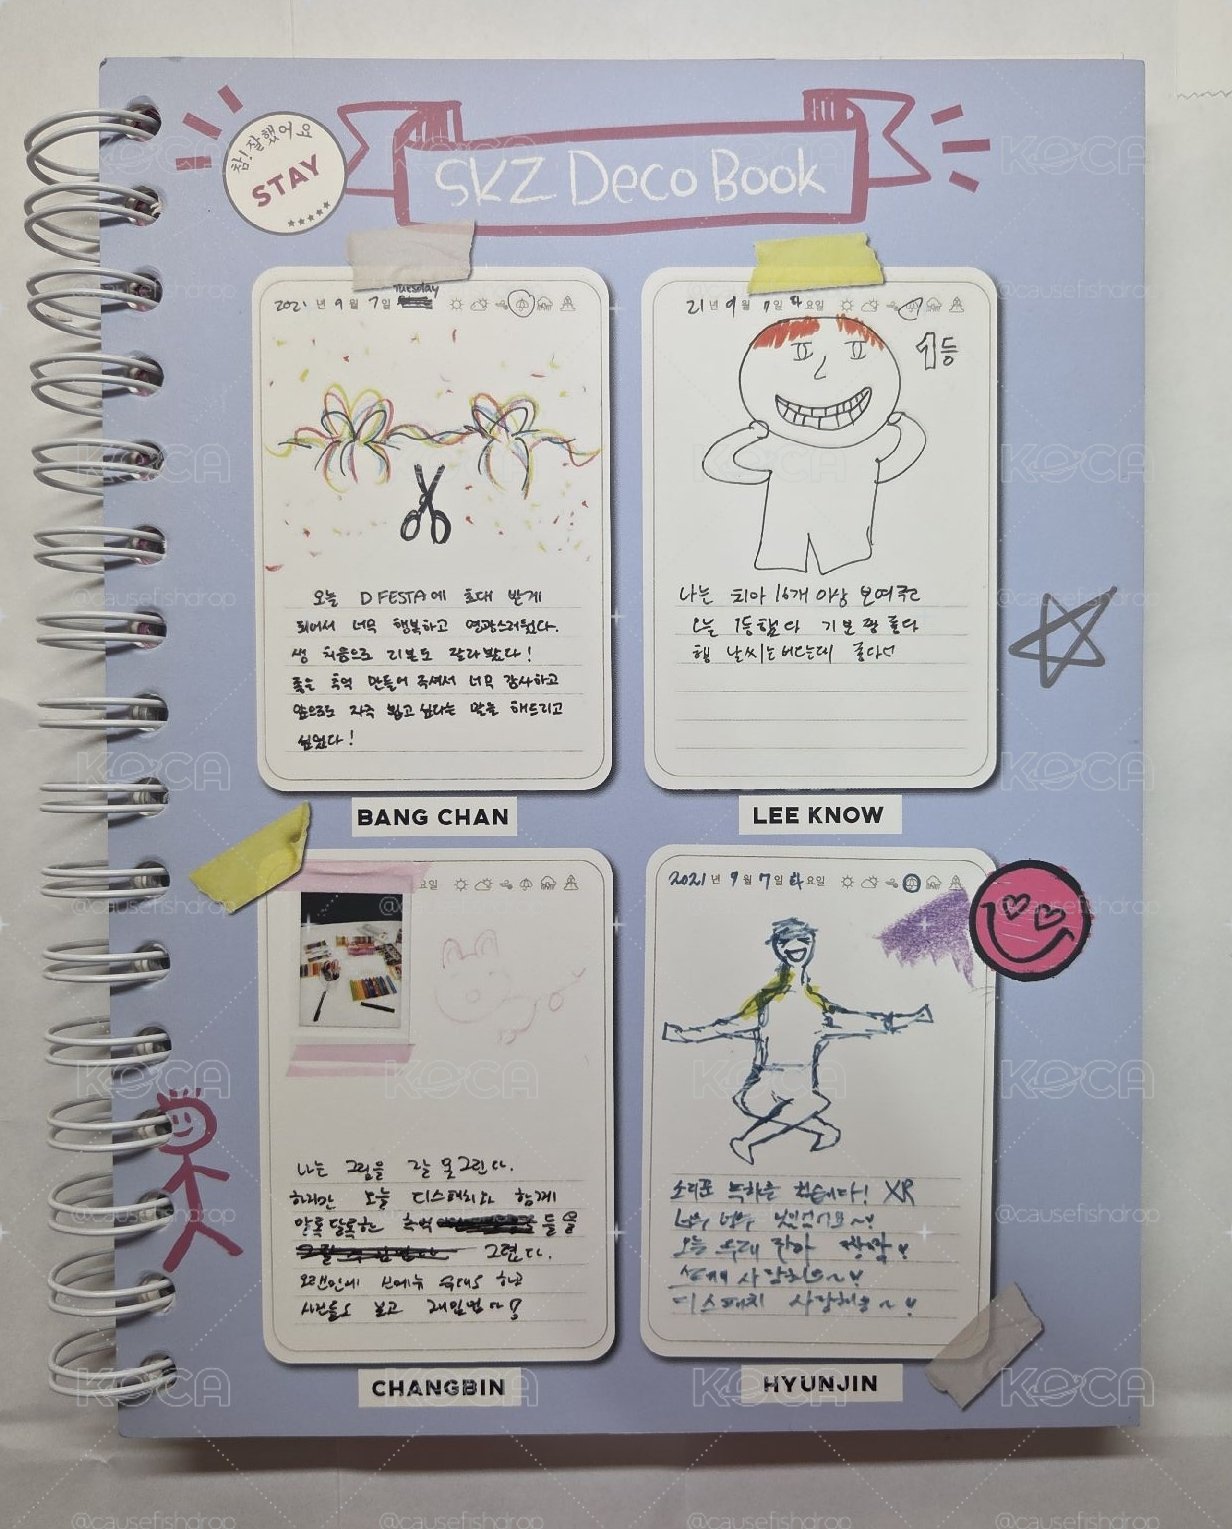 참! 잘했어요
STAY
SKZ Deco Book
2021년 9월 7일 Tuesday
오늘 D FESTA에 초대 받게
되어서 너무 행복하고 영광스러웠다.
생 처음으로 리본도 잘라봤다!
좋은 추억 만들어 주셔서 너무 감사하고
앞으로도 자주 뵙고 싶다는 말을 해드리고
싶었다!
BANG CHAN
21년 9월 7일 화요일
1등
나는 치아 16개 이상 보여주고
오늘 1등했다 기분 짱 좋다
행 날씨는
LEE KNOW
요일
나는 그림을 잘 못그린다.
하지만 오늘 디스패치와 함께
알록달록한 추억들을
그렸다.
오랜만에 하고
사진들도 보고 재밌었다!
CHANGBIN
2021년 9월 7일 화요일
XR
너무 너무 멋있었어요~!
오늘
사랑해요~♥
디스패치 사랑해요~♥
HYUNJIN
KOCA
@causefishdrop